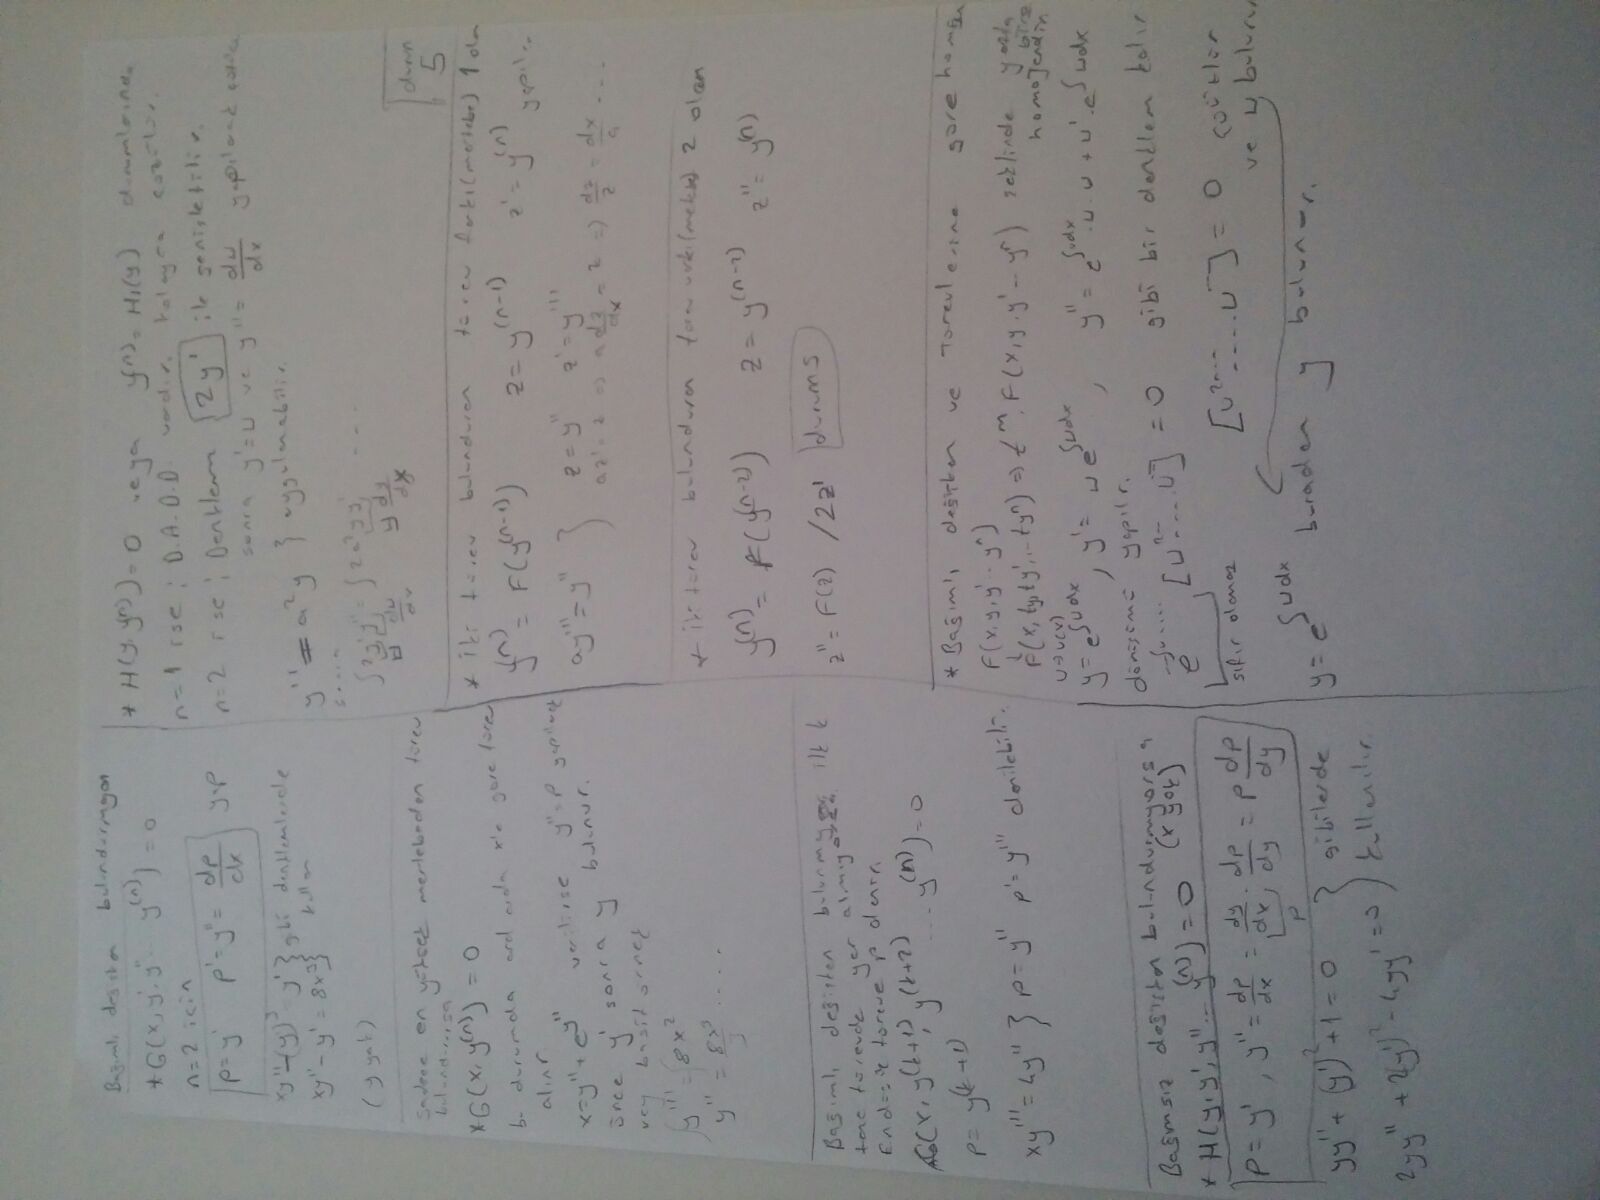 Bağımlı değişken bulundurmayan
*G(x, y', y'' ... y^(n)) = 0
n=2 için
p=y'   p'=y''= dp/dx   yap
xy''-(y')^3 = y' } gibi denklemlerde
xy''-y' = 8x^3 } kullan
(y yok)
Sadece en yüksek mertebeden türev
bulundurursa
*G(x, y^(n)) = 0
bu durumda ard arda x'e göre türev
alınır.
x=y''+e^y'' verilirse y''=p yapılarak
önce y' sonra y bulunur.
vey basit örnek
∫y''' = ∫8x^2
y'' = 8x^3/3 ....
Bağımlı değişken bulunmuyor ilk k
tane türevde yer almıyorsa
türeve p denir.
G(x, y^(k+1), y^(k+2) ... y^(n)) = 0
p = y^(k+1)
xy'''=4y'' } p=y''   p'=y''' denilebilir.
Bağımsız değişken bulundurmuyorsa
(x yok)
* H(y, y', y'' ... y^(n)) = 0
p = y', y'' = dp/dx = dy/dx . dp/dy = p dp/dy
p
yy'' + (y')^2 + 1 = 0 } gibilerde
2yy'' + 2(y')^2 - 4yy' = 0 } kullanılır.
* H(y, y^(n)) = 0 veya y^(n) = H1(y) durumlarında
n=1 ise ; D.A.D.D. vardır. kolayca çözülür.
n=2 ise ; Denklem 2y' ile genişletilir.
sonra y'=u ve y''= du/dx yapılarak
y'' = a^2y } uygulanabilir.
sonra
∫2y'y'' = ∫2a^2yy' ....
u du/dx   y dy/dx
durum
5
* İki türev bulunduran türev farkı (mertebe) 1 olan
y^(n) = F(y^(n-1))   z = y^(n-1)   z' = y^(n) yapılır.
ay''' = y'' } z = y''   z' = y'''
az' = z => a dz/dx = z => dz/z = dx/a ....
* iki türev bulunduran türev 2 olan
y^(n) = F(y^(n-2))   z = y^(n-2)   z'' = y^(n)
z'' = F(z) /2z'   durum5
* Bağımlı değişken ve türevlerine göre homojen
F(x, y, y' ... y^n)
F(x, ty, ty', ... ty^n) => t^m . F(x, y, y' ... y^n) şeklinde
homojendir
u→u(x)
y = e^∫udx , y' = u e^∫udx , y'' = e^∫udx . u . u + u' . e^∫udx
dönüşümü yapılır.
e^∫u.... [u^2 .... u] = 0 gibi bir denklem kalır
sıfır olamaz
[u^2 .... u] = 0 çözülür
ve u bulunur
y = e^∫udx buradan y bulunur.